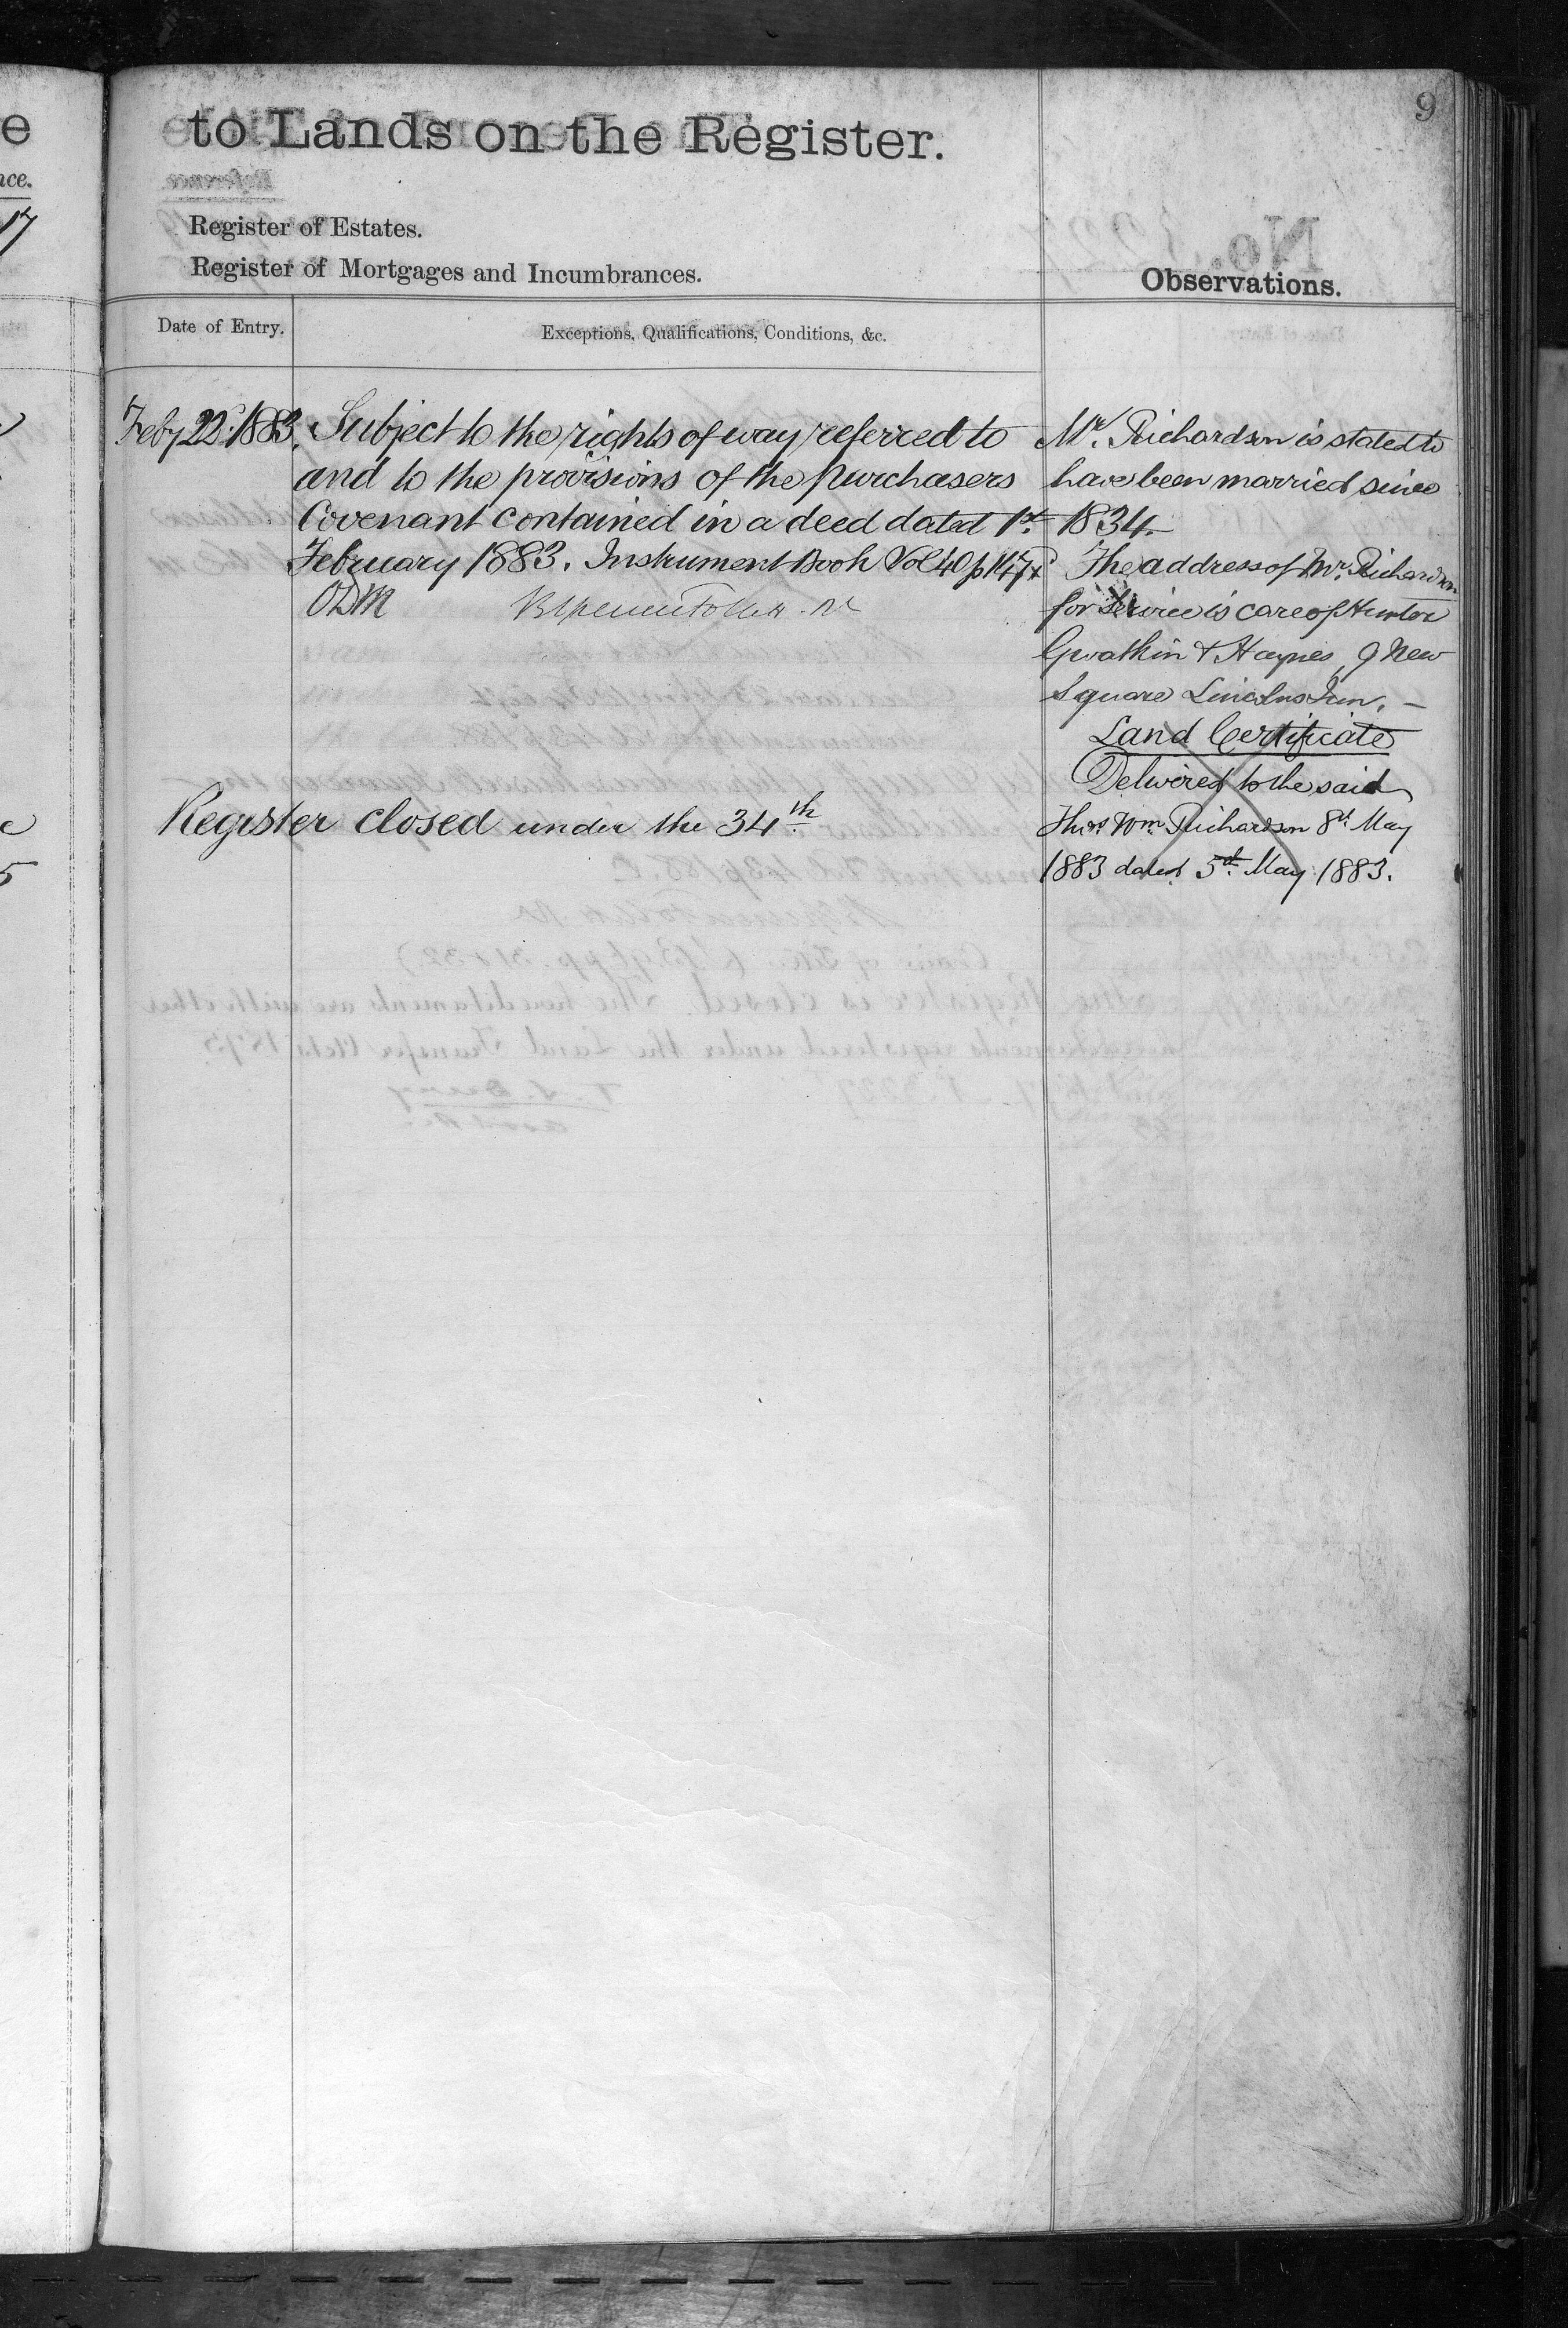 9
to Lands on the Register.
Register of Estates.
Register of Mortgages and Incumbrances.
Observations.
Date of Entry.
Exceptions, Qualifications, Conditions, &c.
Feby 22d. 1883.
Subject to the rights of way referred to
and to the provisions of the purchasers
Covenant contained in a deed dated 1st.
February 1883. Instrument Book Vol 40 p 147
ODM
Register closed under the 34th.
Mr. Richardson is stated to
have been married since
1834.
The address of Mr. Richardson
for service is care of Hunter
Gwatkin & Haynes, 9 New
Square Lincolns Inn. –
Land Certificate
Delivered to the said
Thos. Wm. Richardson 8th. May
1883 dated 5th. May 1883.
e
nce.
17
e
5